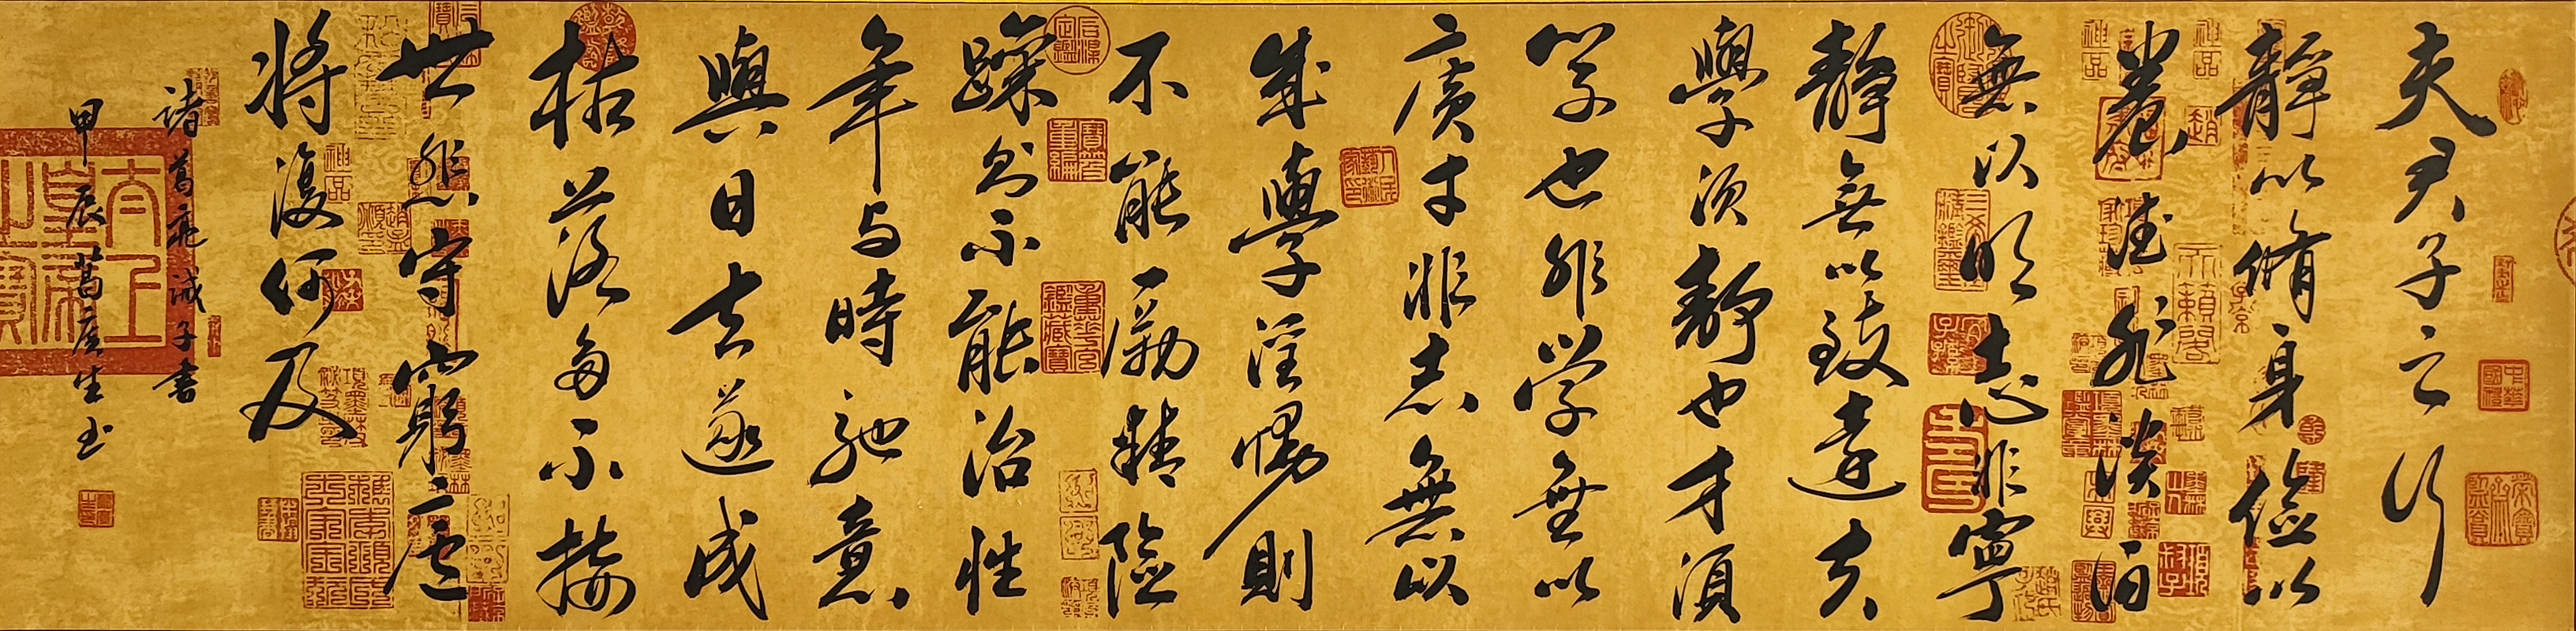 夫君子之行
靜以脩身儉以
養德非淡泊
無以明志非寧
靜無以致遠夫
學須靜也才須
學也非学無以
廣才非志無以
成學淫慢則
不能勵精險
躁则不能治性
年与時馳意
與日去遂成
枯落多不接
世悲守窮廬
將復何及
諸葛亮誡子書
甲辰葛庆生书